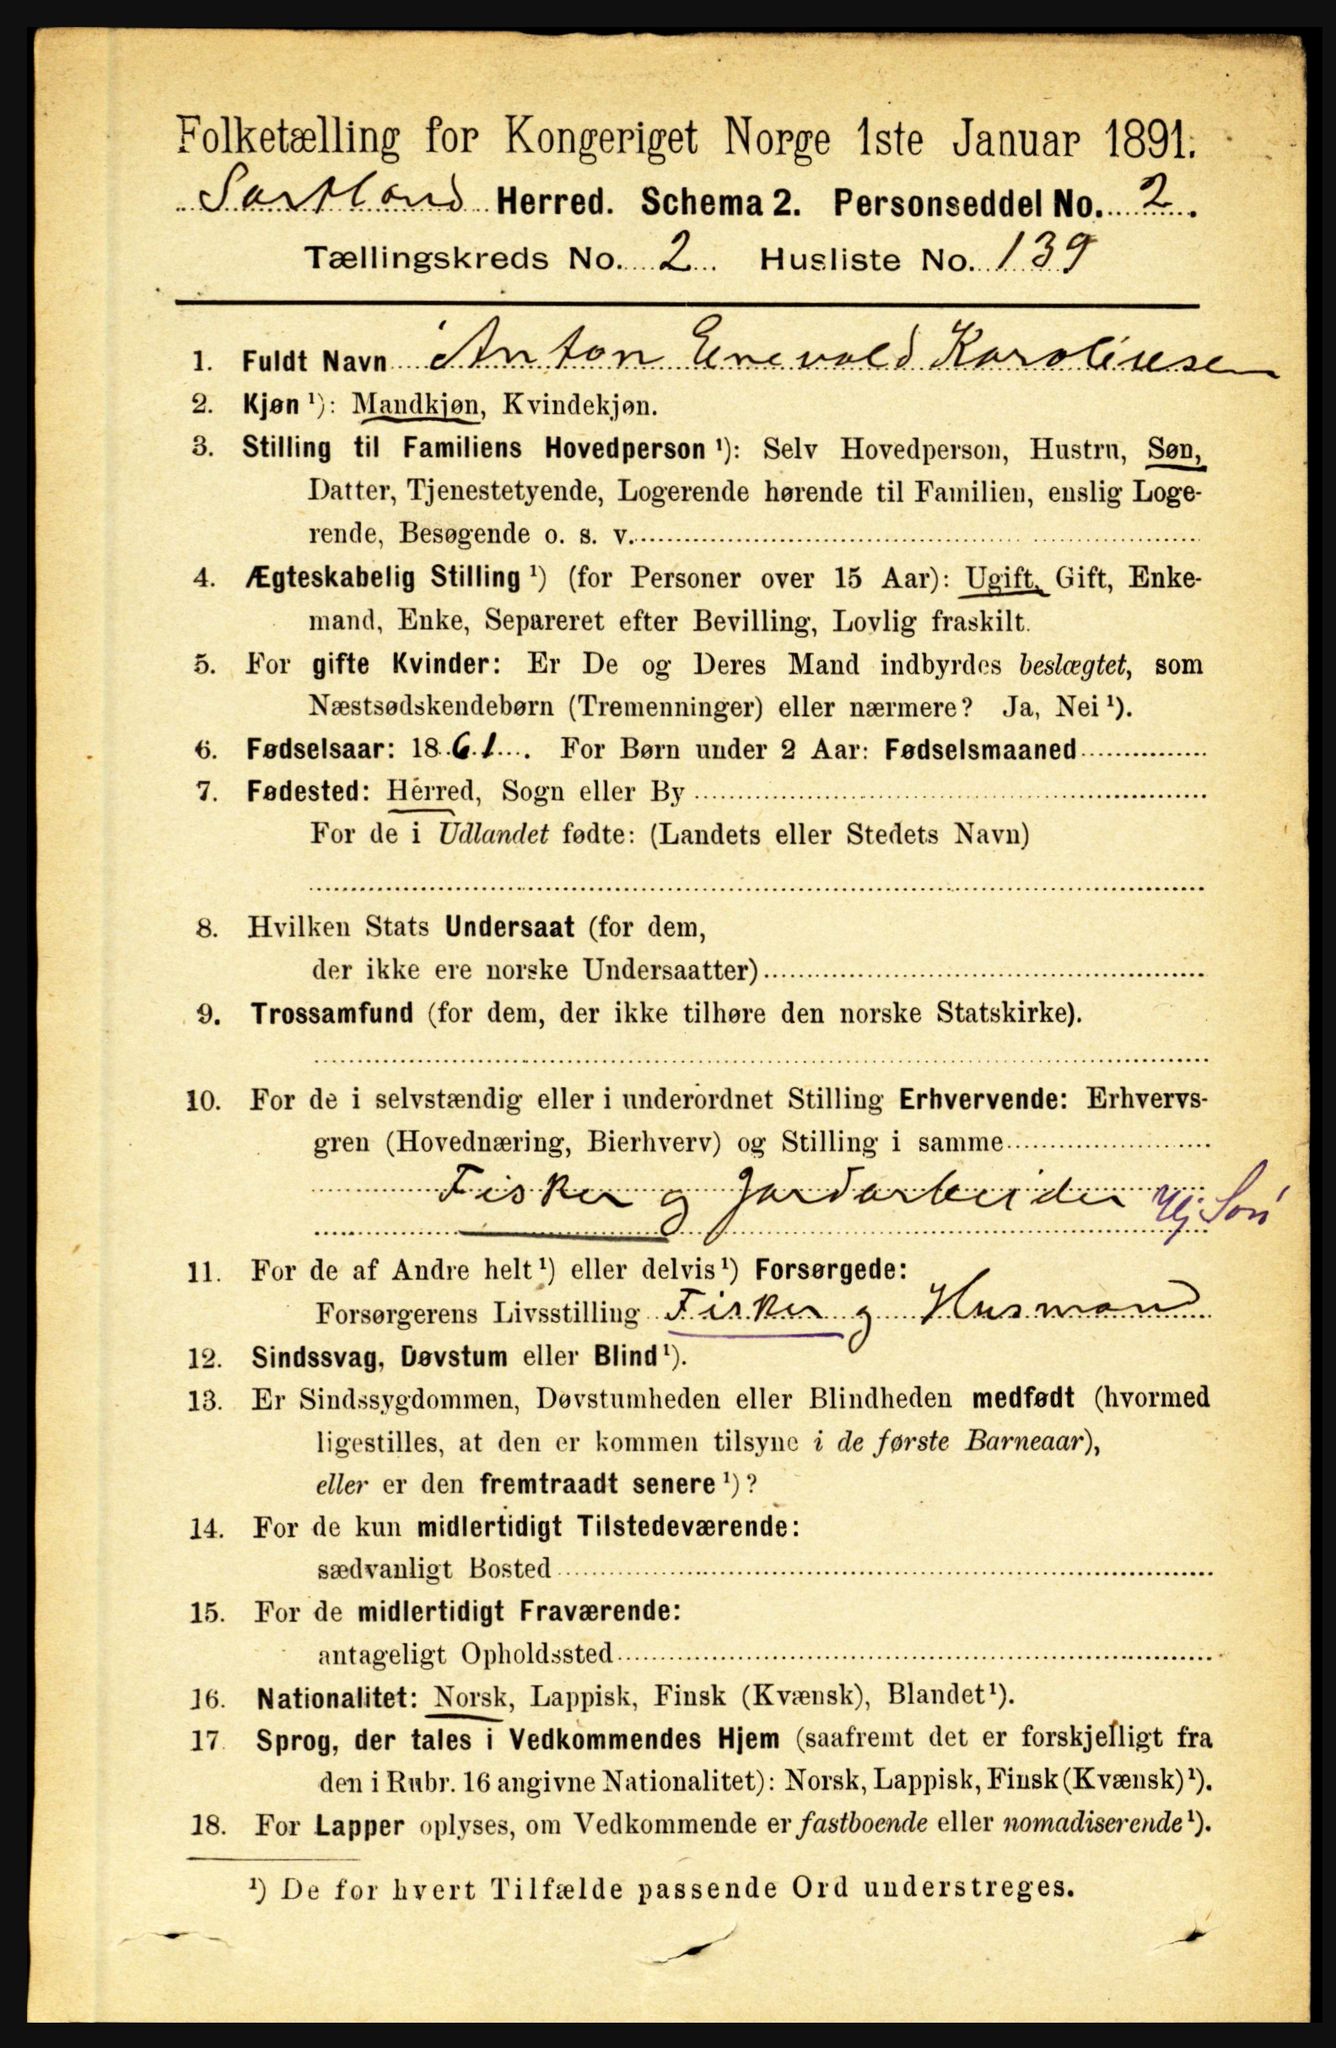 Folketælling for Kongeriget Norge 1ste Januar 1891.
Sortland Herred. Schema 2. Personseddel No. 2.
Tællingskreds No. 2. Husliste No. 139
1. Fuldt Navn Anton Enevold Karoliusen
2. Kjøn ¹): Mandkjøn, Kvindekjøn.
3. Stilling til Familiens Hovedperson ¹): Selv Hovedperson, Hustru, Søn,
Datter, Tjenestetyende, Logerende hørende til Familien, enslig Loge-
rende, Besøgende o. s. v.
4. Ægteskabelig Stilling ¹) (for Personer over 15 Aar): Ugift, Gift, Enke-
mand, Enke, Separeret efter Bevilling, Lovlig fraskilt.
5. For gifte Kvinder: Er De og Deres Mand indbyrdes beslægtet, som
Næstsødskendebørn (Tremenninger) eller nærmere? Ja, Nei ¹).
6. Fødselsaar: 1861. For Børn under 2 Aar: Fødselsmaaned
7. Fødested: Herred, Sogn eller By
For de i Udlandet fødte: (Landets eller Stedets Navn)
8. Hvilken Stats Undersaat (for dem,
der ikke ere norske Undersaatter)
9. Trossamfund (for dem, der ikke tilhøre den norske Statskirke).
10. For de i selvstændig eller i underordnet Stilling Erhvervende: Erhvervs-
gren (Hovednæring, Bierhverv) og Stilling i samme
Fisker og Jordarbeider Hj. Søn
11. For de af Andre helt ¹) eller delvis ¹) Forsørgede:
Forsørgerens Livsstilling Fisker og Husmand
12. Sindssvag, Døvstum eller Blind ¹).
13. Er Sindssygdommen, Døvstumheden eller Blindheden medfødt (hvormed
ligestilles, at den er kommen tilsyne i de første Barneaar),
eller er den fremtraadt senere ¹)?
14. For de kun midlertidigt Tilstedeværende:
sædvanligt Bosted
15. For de midlertidigt Fraværende:
antageligt Opholdssted
16. Nationalitet: Norsk, Lappisk, Finsk (Kvænsk), Blandet ¹).
17 Sprog, der tales i Vedkommendes Hjem (saafremt det er forskjelligt fra
den i Rubr. 16 angivne Nationalitet): Norsk, Lappisk, Finsk (Kvænsk) ¹).
18. For Lapper oplyses, om Vedkommende er fastboende eller nomadiserende ¹).
¹) De for hvert Tilfælde passende Ord understreges.